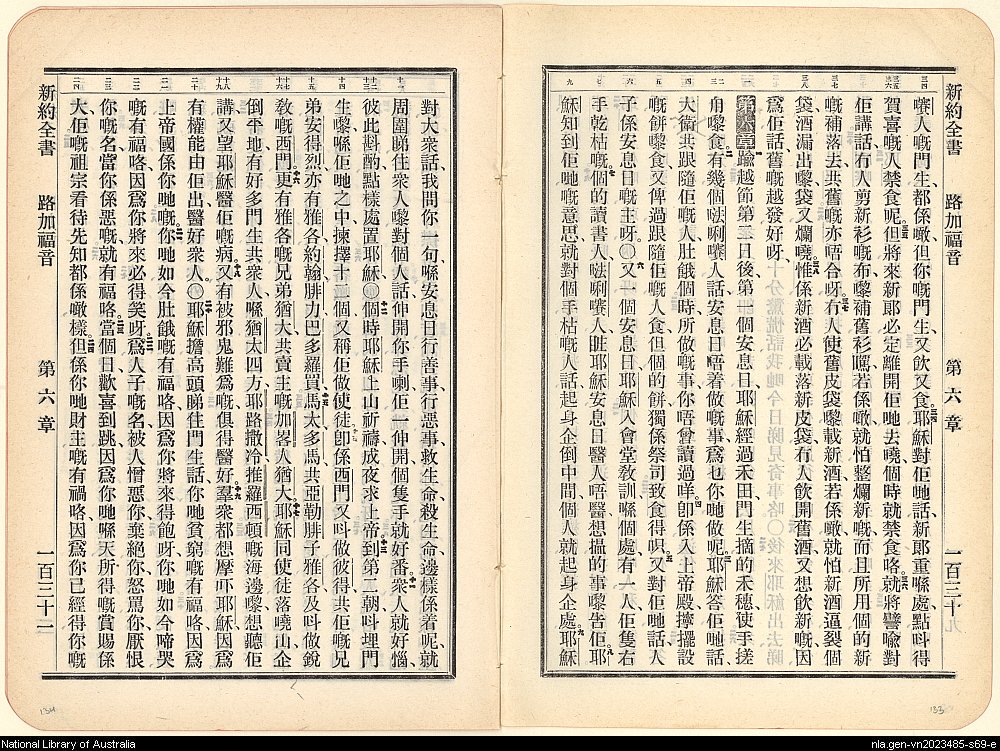 新約全書 路加福音 第六章
人嘅門生都係噉但你嘅門生又飲又食耶穌對佢哋話新郞重喺處點呌得
賀喜嘅人禁食呢但將來新郞必定離開佢哋去嘵個時就禁食咯就將譬喩對
佢講話有人剪新衫嘅布嚟補舊衫嚒若係噉就怕整爛新嘅而且所用個的新
嘅補落去共舊嘅亦唔合呀有人使舊皮袋嚟載新酒若係噉就怕新酒逼裂個
袋酒漏出嚟袋又爛嘵惟係新酒必載落新皮袋有人飲開舊酒又想飲新嘅因
爲佢話舊嘅越發好呀
第六章踰越節第二日後第一個安息日耶穌經過禾田門生摘的禾穗使手搓
甪嚟食有幾個唎人話安息日唔着做嘅事爲乜你哋做呢耶穌答佢哋話
大衛共跟隨佢嘅人肚餓個時所做嘅事你唔曾讀過咩卽係入上帝殿擰擺設
嘅餅嚟食又俾過跟隨佢嘅人食但個的餅獨係祭司致食得唄又對佢哋話人
子係安息日嘅主呀〇又一個安息日耶穌入會堂敎訓喺個處有一人佢隻右
手乾枯嘅個的讀書人唎人䁪耶穌安息日醫人唔醫想揾的事嚟吿佢耶
穌知到佢哋嘅意思就對個手枯嘅人話起身企倒中間個人就起身企處耶穌
對大衆話我問你一句喺安息日行善事行惡事救生命殺生命邊樣係着呢就
周圍睇住衆人嚟對個人話伸開你手喇佢一伸開個隻手就好番衆人就好惱
彼此斟酌點樣處置耶穌〇個時耶穌上山祈禱成夜求上帝到第二朝呌埋門
生嚟喺佢哋之中揀擇十二個又稱佢做使徒卽係西門又呌做彼得共佢嘅兄
弟安得烈亦有雅各約翰腓力巴多羅買馬太多馬共亞勒腓子雅各及呌做銳
敎嘅西門更有雅各嘅兄弟猶大共賣主嘅加畧人猶大耶穌同使徒落嘵山企
倒平地有好多門生共衆人喺猶太四方耶路撒冷推羅西頓嘅海邊嚟想聽佢
講又望耶穌醫佢嘅病又有被邪鬼難爲嘅俱得醫好羣衆都想摩吓耶穌因爲
有權能由佢出醫好衆人〇耶穌擔高頭睇住門生話你哋貧窮嘅有福咯因爲
上帝國係你哋嘅你哋如今肚餓嘅有福咯因爲你將來得飽呀你哋如今啼哭
嘅有福咯因爲你將來必得笑呀爲人子嘅名被人憎惡你棄絕你怒駡你厭恨
你嘅名當你係惡嘅就有福咯當個日歡喜到跳因爲你哋喺天所得嘅賞賜係
大佢嘅祖宗看待先知都係噉樣但係你哋財主嘅有禍咯因爲你已經得你嘅
新約全書 路加福音 第六章 一百三十二
133
134
National Library of Australia
nla.gen-vn2023485-s69-e